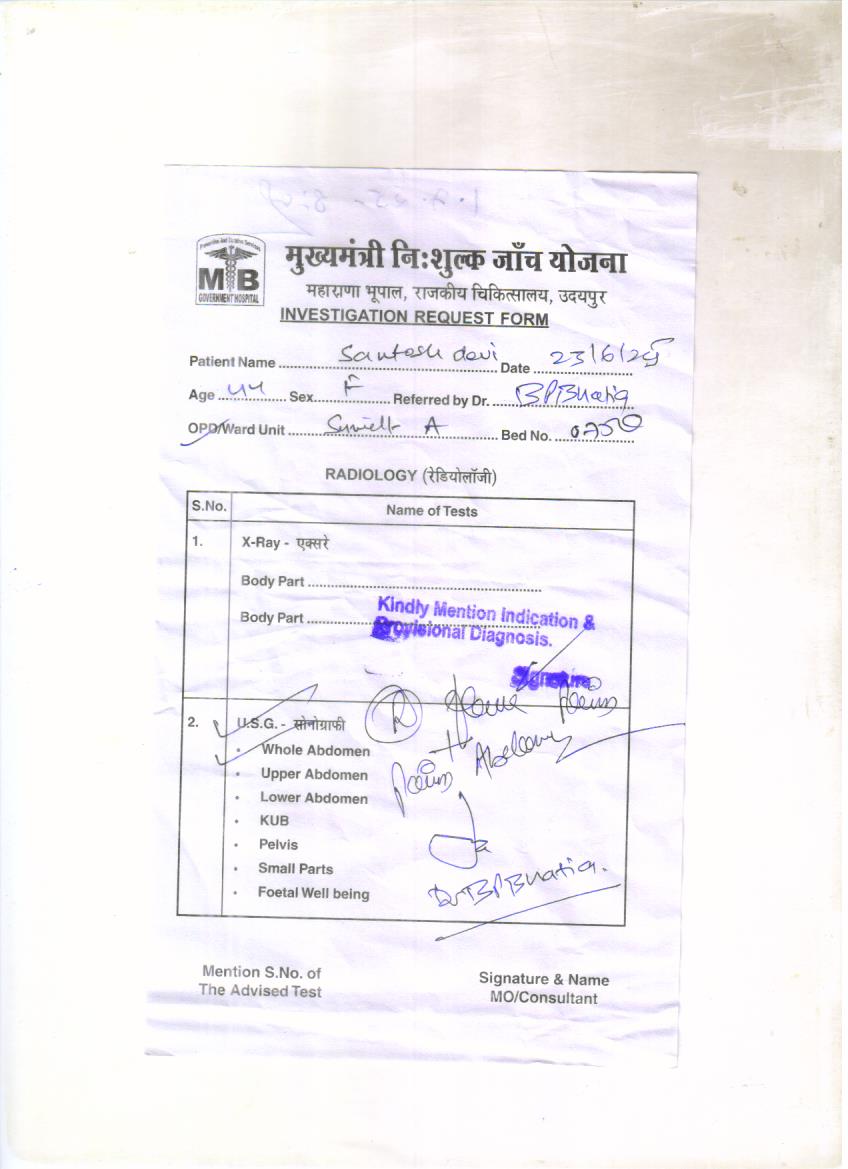 Preventive And Curative Services
MB
GOVERNMENT HOSPITAL
मुख्यमंत्री नि:शुल्क जाँच योजना
महाराणा भूपाल, राजकीय चिकित्सालय, उदयपुर
INVESTIGATION REQUEST FORM
Patient Name Santosh devi Date 23/6/25
Age 44 Sex F Referred by Dr. BPBhatia
OPD/Ward Unit A Bed No. 0750
RADIOLOGY (रेडियोलॉजी)
S.No. Name of Tests
1. X-Ray - एक्सरे
Body Part
Body Part
Kindly Mention Indication &
Provisional Diagnosis.
Signature
2. U.S.G. - सोनोग्राफी
• Whole Abdomen
• Upper Abdomen
• Lower Abdomen
• KUB
• Pelvis
• Small Parts
• Foetal Well being
Dr BPBhatia.
Mention S.No. of
The Advised Test
Signature & Name
MO/Consultant